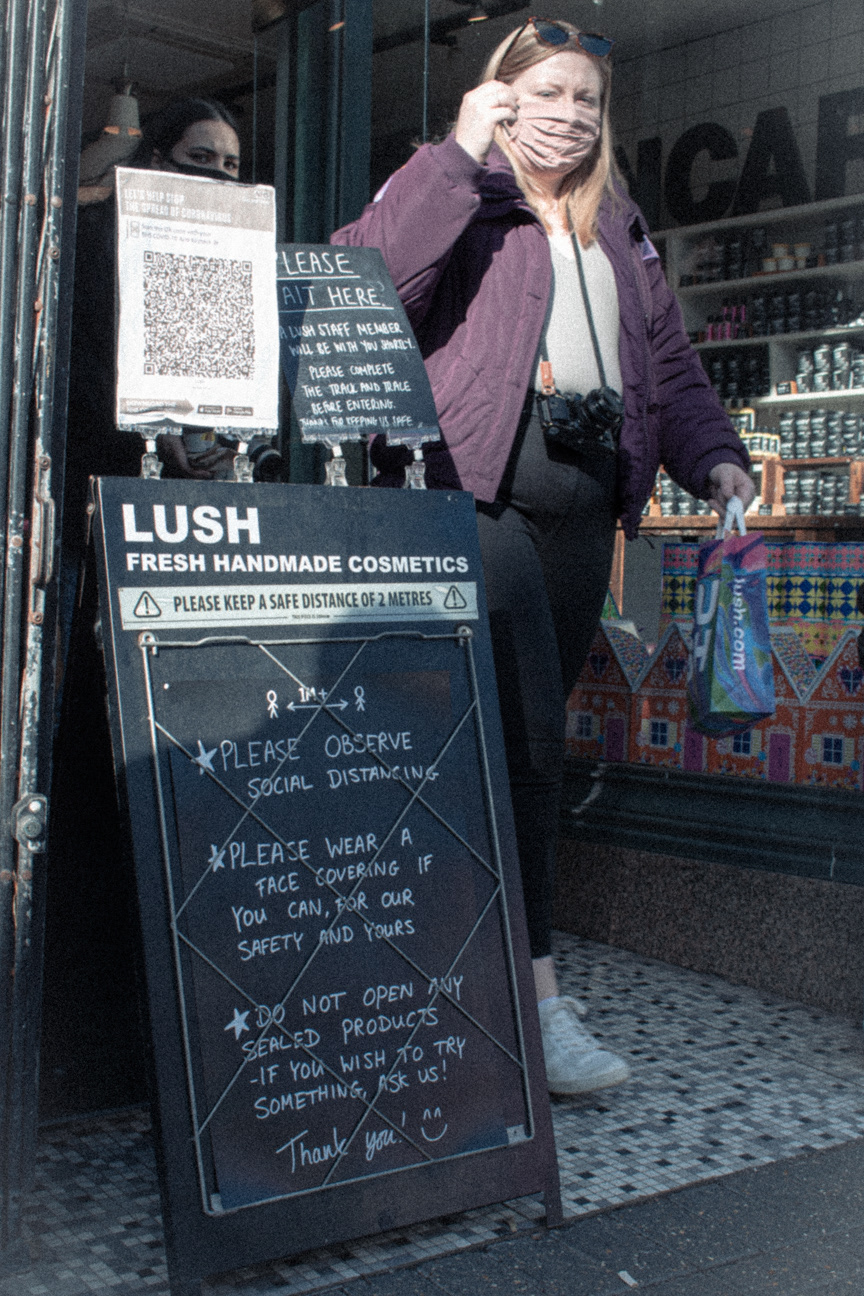 LET'S HELP STOP
THE SPREAD OF CORONAVIRUS
PLEASE
AIT HERE.
A LUSH STAFF MEMBER
WILL BE WITH YOU SHORTLY.
PLEASE COMPLETE
THE TRACK AND TRACE
BEFORE ENTERING.
THANKS FOR KEEPING US SAFE
LUSH
FRESH HANDMADE COSMETICS
PLEASE KEEP A SAFE DISTANCE OF 2 METRES
1M+
PLEASE OBSERVE
SOCIAL DISTANCING
PLEASE WEAR A
FACE COVERING IF
YOU CAN, FOR OUR
SAFETY AND YOURS
DO NOT OPEN ANY
SEALED PRODUCTS
-IF YOU WISH TO TRY
SOMETHING, ASK US!
Thank you!
NCAR
lush.com